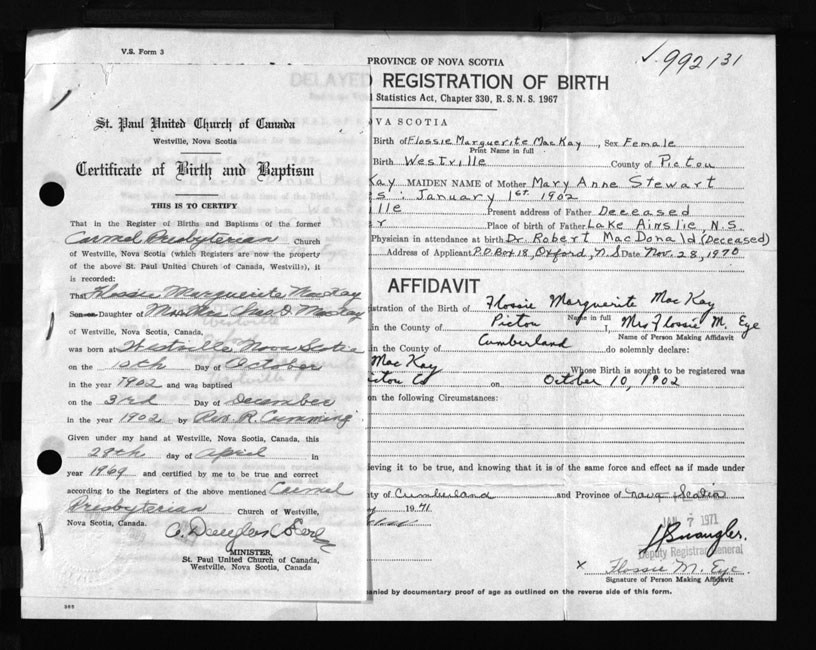 V.S. Form 3
St. Paul United Church of Canada
Westville, Nova Scotia
Certificate of Birth and Baptism
THIS IS TO CERTIFY
That in the Register of Births and Baptisms of the former
Carmel Presbyterian Church
of Westville, Nova Scotia (which Registers are now the property
of the above St. Paul United Church of Canada, Westville), it
is recorded:
That Flossie Marguerite MacKay
Son or Daughter of Mr & Mrs Chas D. MacKay
of Westville, Nova Scotia, Canada,
was born at Westville Nova Scotia
on the 10th Day of October
in the year 1902 and was baptised
on the 3rd Day of December
in the year 1902 by Rev. R. Cumming
Given under my hand at Westville, Nova Scotia, Canada, this
29th day of April in
year 1969 and certified by me to be true and correct
according to the Registers of the above mentioned Carmel
Presbyterian Church of Westville,
Nova Scotia, Canada.
MINISTER,
St. Paul United Church of Canada,
Westville, Nova Scotia, Canada
992131
PROVINCE OF NOVA SCOTIA
DELAYED REGISTRATION OF BIRTH
Statistics Act, Chapter 330, R.S.N.S. 1967
VA SCOTIA
Birth of Flossie Marguerite MacKay, Sex Female
Print Name in full
Birth Westville County of Pictou
Kay MAIDEN NAME of Mother Mary Anne Stewart
s: January 1st. 1902
ille Present address of Father Deceased
r Place of birth of Father Lake Ainslie, N.S.
Physician in attendance at birth Dr. Robert MacDonald (Deceased)
Address of Applicant P.O. Box 18, Oxford, N.S Date Nov. 28, 1970
AFFIDAVIT
stration of the Birth of Flossie Marguerite MacKay
Name in full
in the County of Pictou I, Mrs Flossie M. Eye
Name of Person Making Affidavit
in the County of Cumberland do solemnly declare:
MacKay Whose Birth is sought to be registered was
ictou Co on October 10, 1902
n the following Circumstances:
ieving it to be true, and knowing that it is of the same force and effect as if made under
ty of Cumberland and Province of Nova Scotia
1971
JAN 7 1971
Deputy Registrar General
x Flossie M. Eye
Signature of Person Making Affidavit
anied by documentary proof of age as outlined on the reverse side of this form.